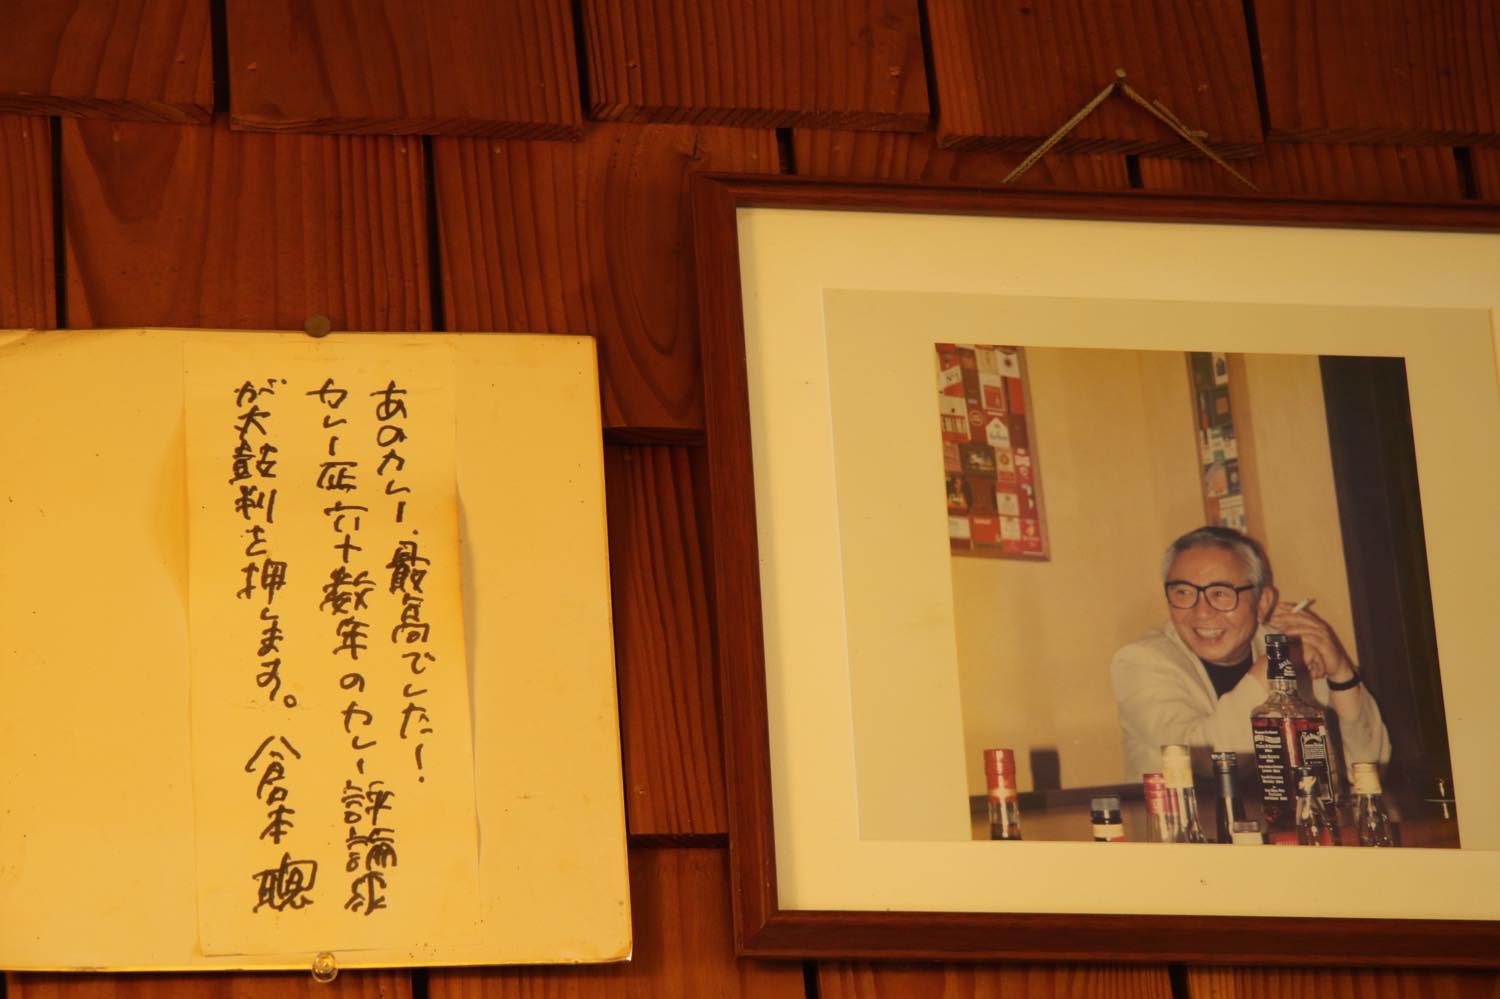 あのカレー、最高でした！
カレー歴六十数年のカレー評論家
が太鼓判を押します。 倉本 聰